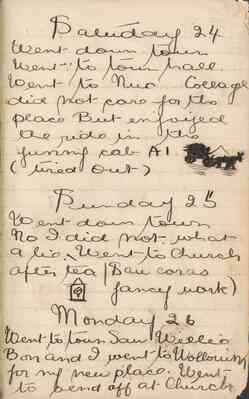 Saturday 24
Went down town
Went to town hall
Went to New College
did not care for the
place But enjoyed
the ride in the
juring cab A1
(tired out)
Sunday 25
Went down town
No I did not what
a lie. Went to Church
after tea (Saw
fancy work)
Monday 26
Went to town Saw Wellie
Bon and I went to
for my new place. Went
to send off at Church